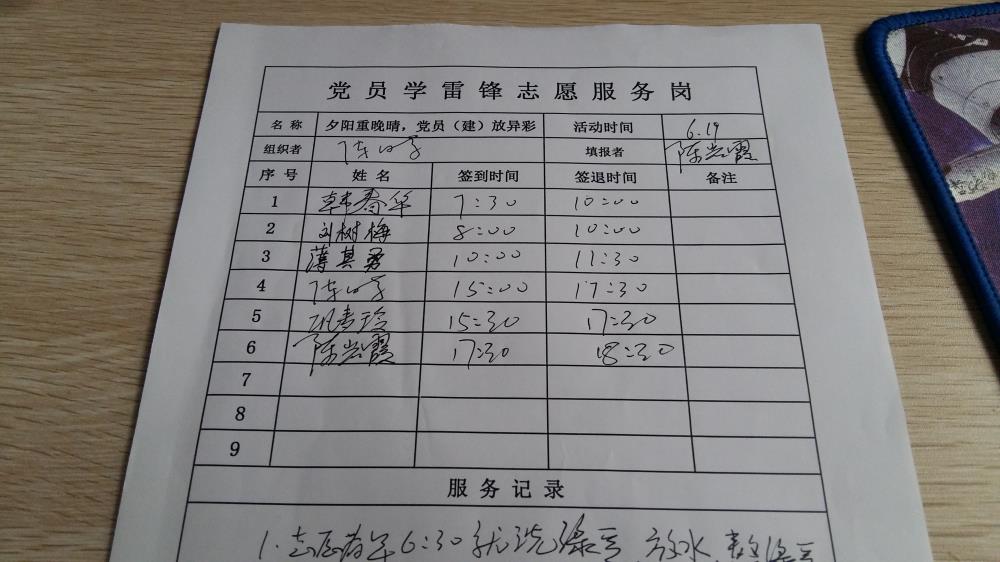 党员学雷锋志愿服务岗
名称 夕阳重晚晴，党员（建）放异彩 活动时间 6.19
组织者 填报者 陈岩霞
序号 姓名 签到时间 签退时间 备注
1 韩春华 7:30 10:00
2 刘树梅 8:00 10:00
3 薄其勇 10:00 11:30
4 15:00 17:30
5 15:30 17:30
6 陈岩霞 17:30 18:30
7
8
9
服务记录
1.志愿者早6:30就洗 放水